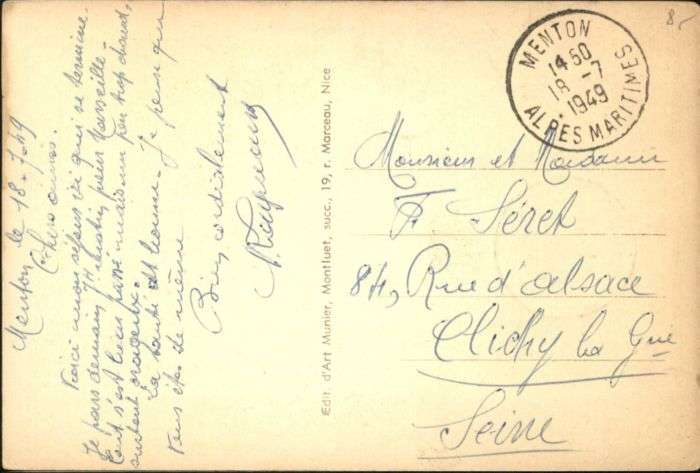 Menton le 18-7-49
Chers amis.
Voici mon séjour ici qui se termine.
Je pars demain, 19, matin pour Marseille.
Tout s'est bien passé mais un peu trop chaud,
surtout orageux.
La santé est bonne. Je pense que
vous êtes de même
Bien cordialement
Edit. d'Art Munier, Montluet, succ., 19, r. Marceau, Nice
MENTON
1450
18 -7
1949
ALPES MARITIMES
8
Monsieur et Madame
F. Séret
84, Rue d'Alsace
Clichy la Gne
Seine